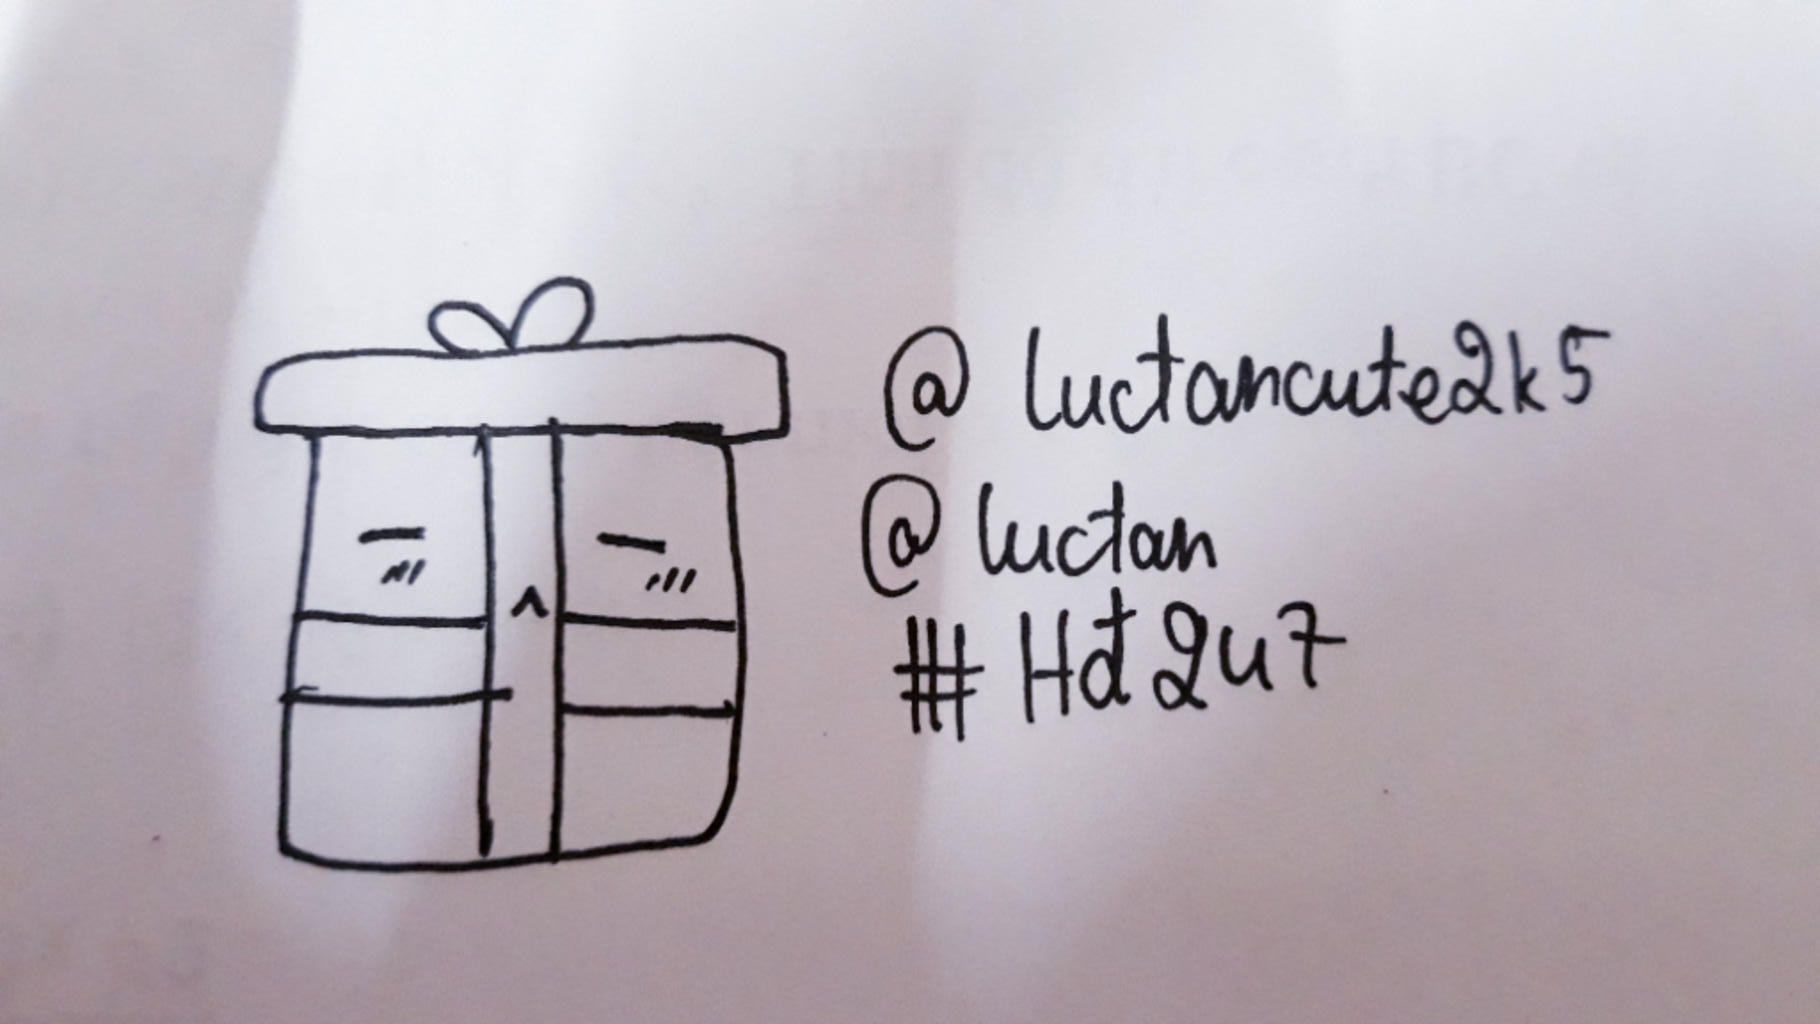 @ luctancute2k5
@ luctan
# Hđ2u7